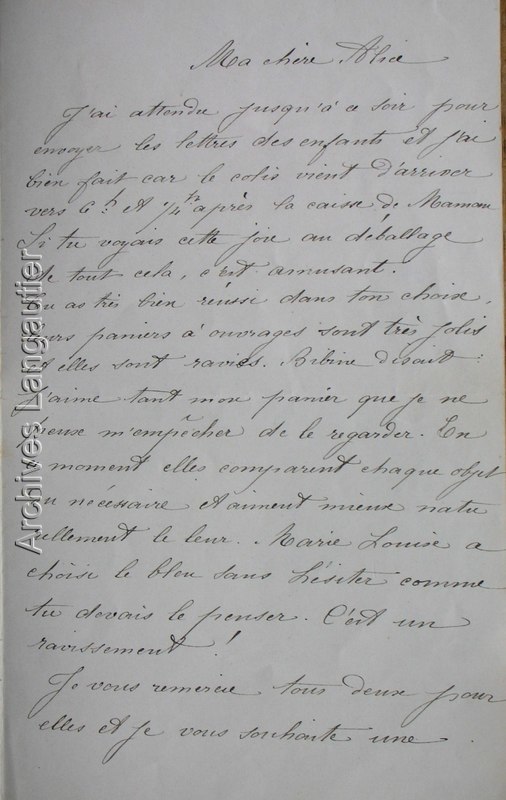 Ma chère Alice
J'ai attendu jusqu'à ce soir pour
envoyer les lettres des enfants et j'ai
bien fait car le colis vient d'arriver
vers 6h. et 1/4 après la caisse de Maman
Si tu voyais cette joie au déballage
de tout cela, c'est amusant.
Tu as très bien réussi dans ton choix,
leurs paniers à ouvrages sont très jolis
et elles sont ravies. Bibine disait :
J'aime tant mon panier que je ne
peux m'empêcher de le regarder. En
ce moment elles comparent chaque objet
du nécessaire et aiment mieux natu
rellement le leur. Marie Louise a
choisi le bleu sans hésiter comme
tu devais le penser. C'est un
ravissement !
Je vous remercie tous deux pour
elles et je vous souhaite une
Archives Langautier